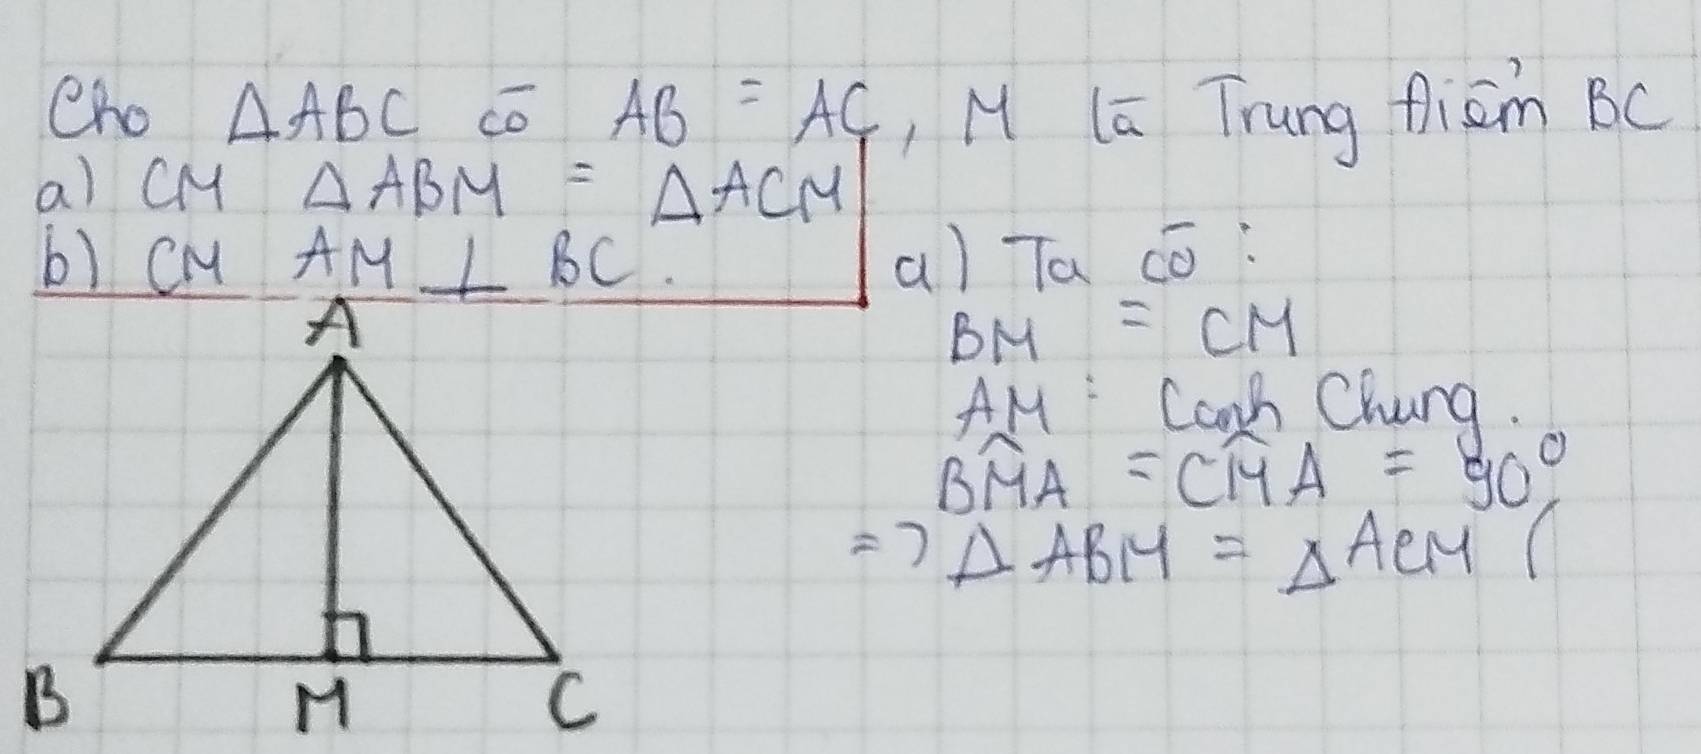 Cho ΔABC có AB = AC, M là Trung điểm BC
a) CM ΔABM = ΔACM
b) CM AM ⊥ BC.
A
B
M
C
a) Ta có:
BM = CM
AM : Cạnh Chung.
BM̂A = CM̂A = 90⁰
=> Δ ABM = Δ ACM (